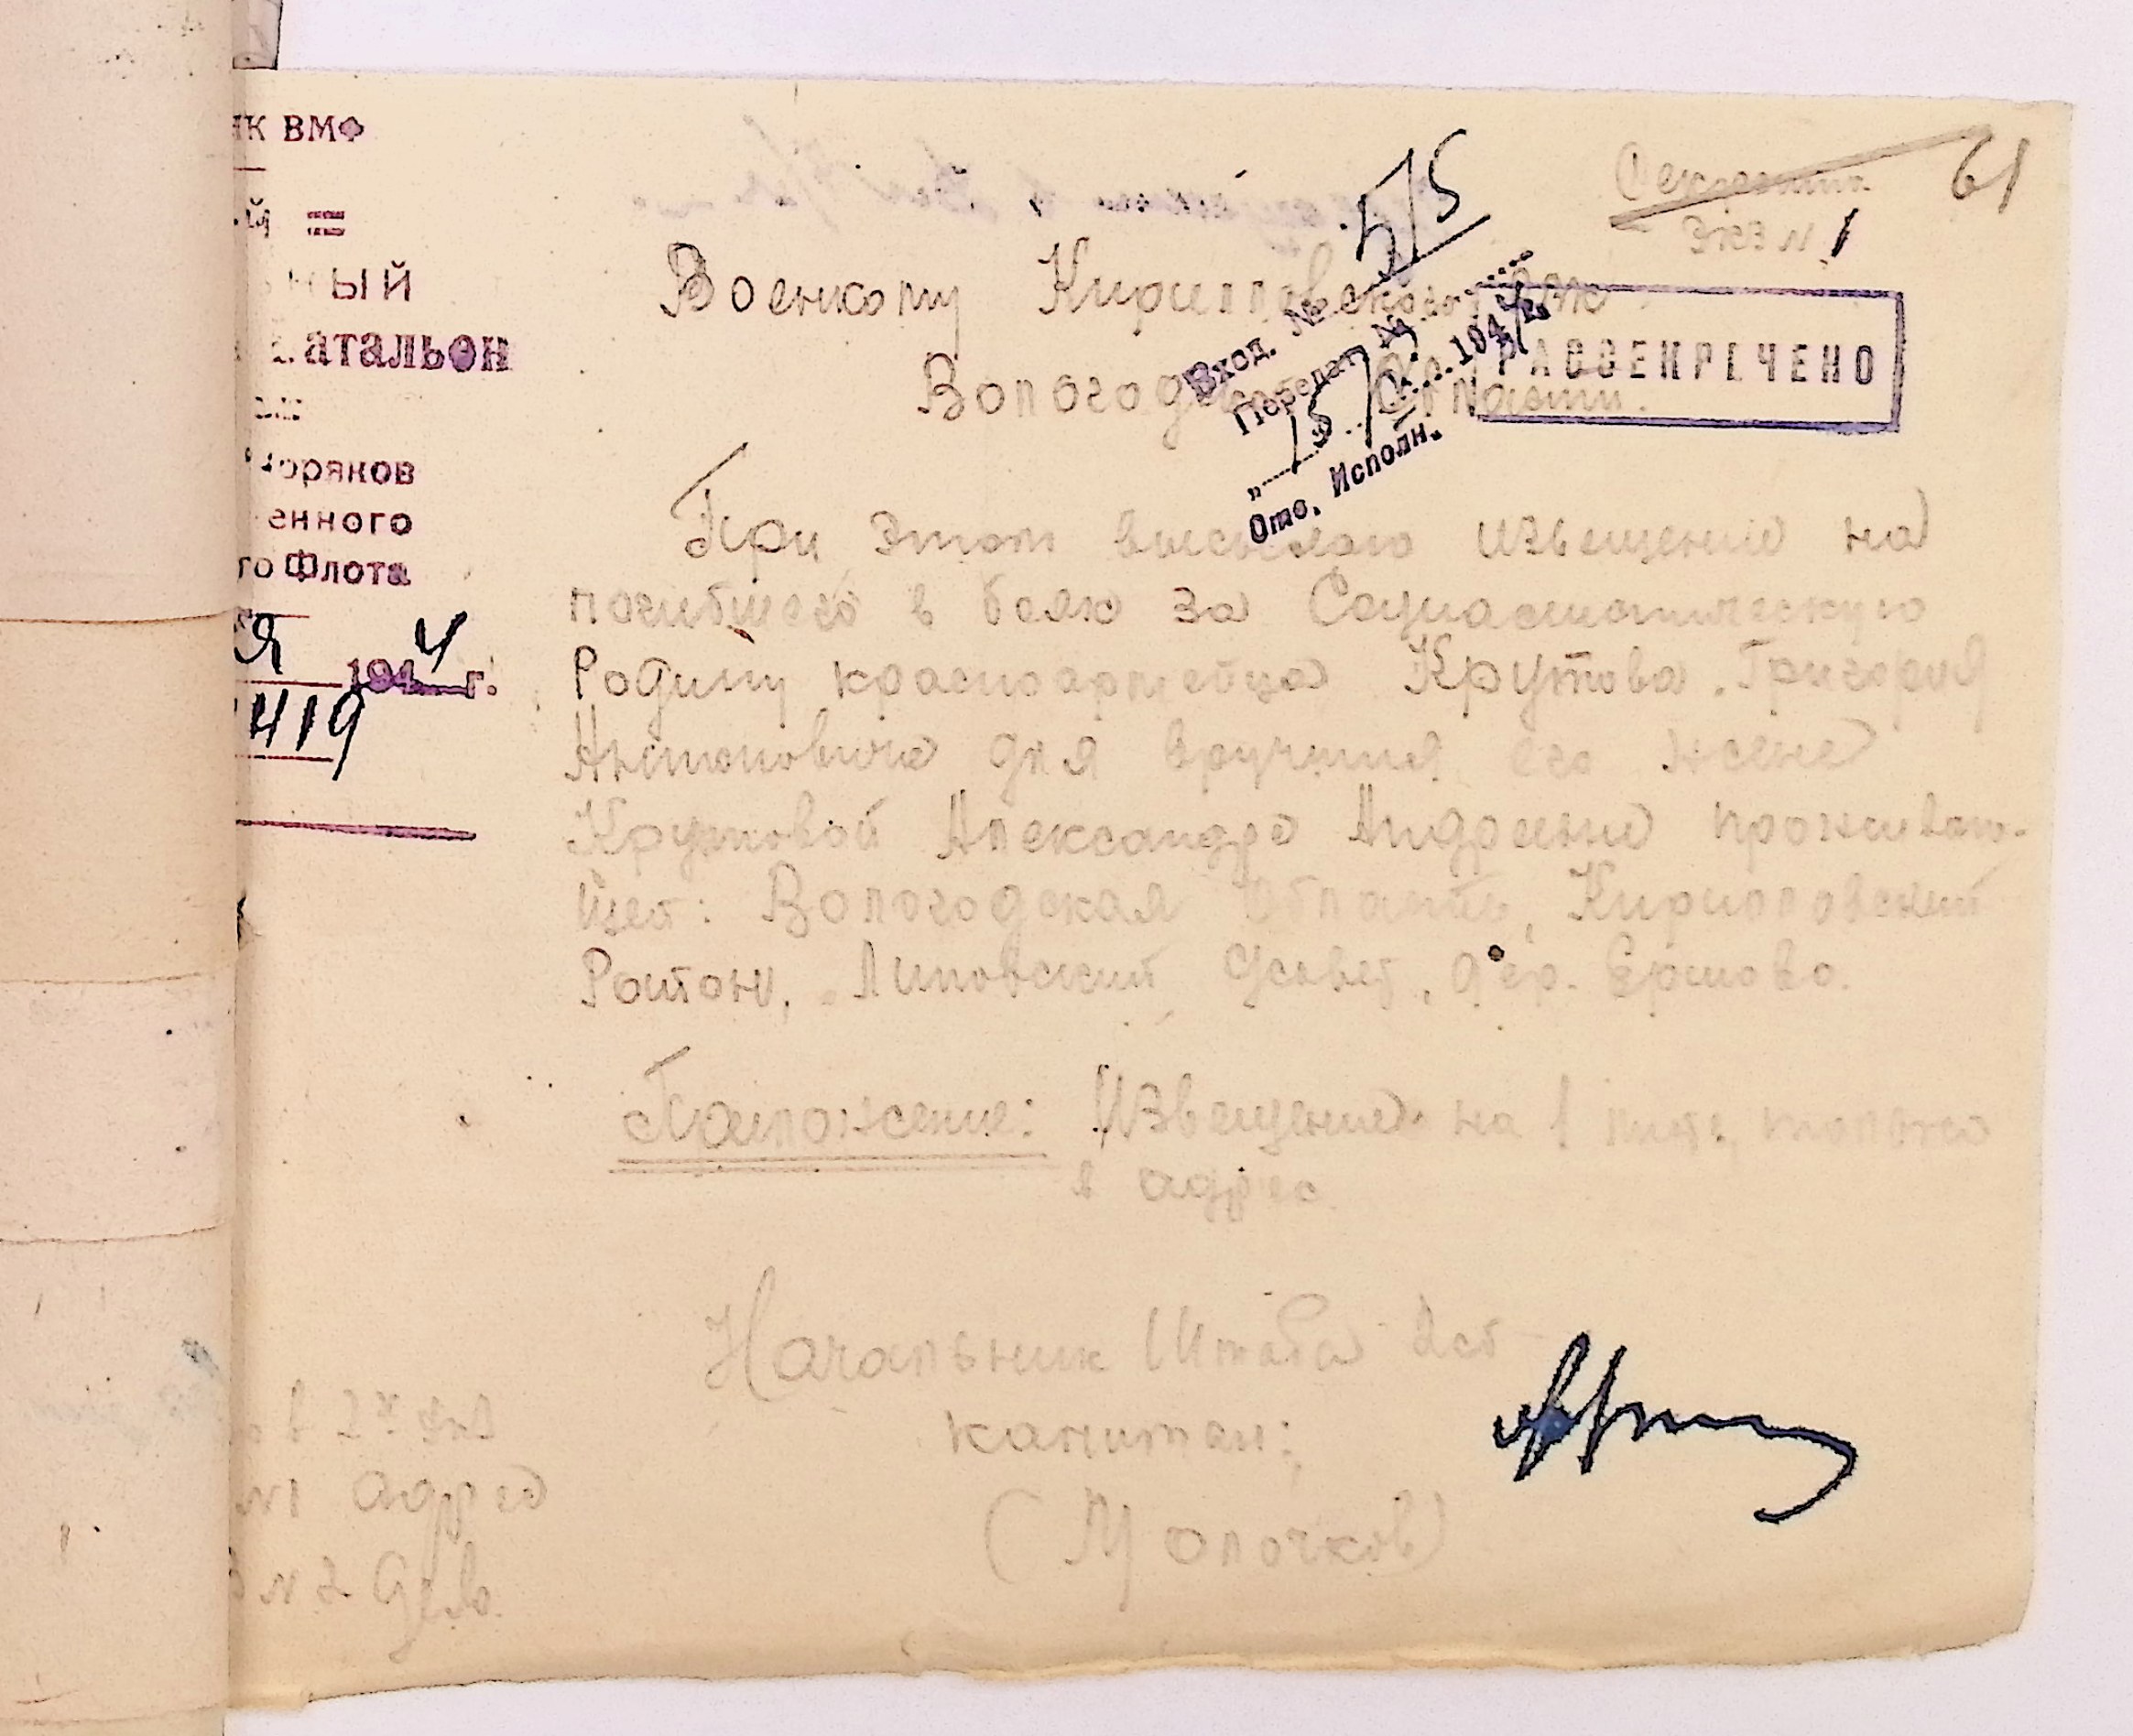 НК ВМФ
ый
атальон
оряков
енного
го Флота
1944 г.
419
Секретно
61
Экз №1
575
Военкому Кирилловского РВК
Вологодской области.
Вход. №
Передат. №
"15/ 1944 г.
Отв. Исполн.
РАССЕКРЕЧЕНО
При этом высылаю извещение на
погибшего в боях за Социалистическую
Родину красноармейца Крутова Григория
Антоновича для вручения его жене
Крутовой Александре Андреевне проживаю-
щей: Вологодская область, Кирилловский
Район, Липовский с/совет, дер. Ершово.
Приложение: Извещение на 1 листе, только
в адрес.
Начальник Штаба
капитан:
(Молочков)
в 2х экз
№1 адрес
№2 дело.